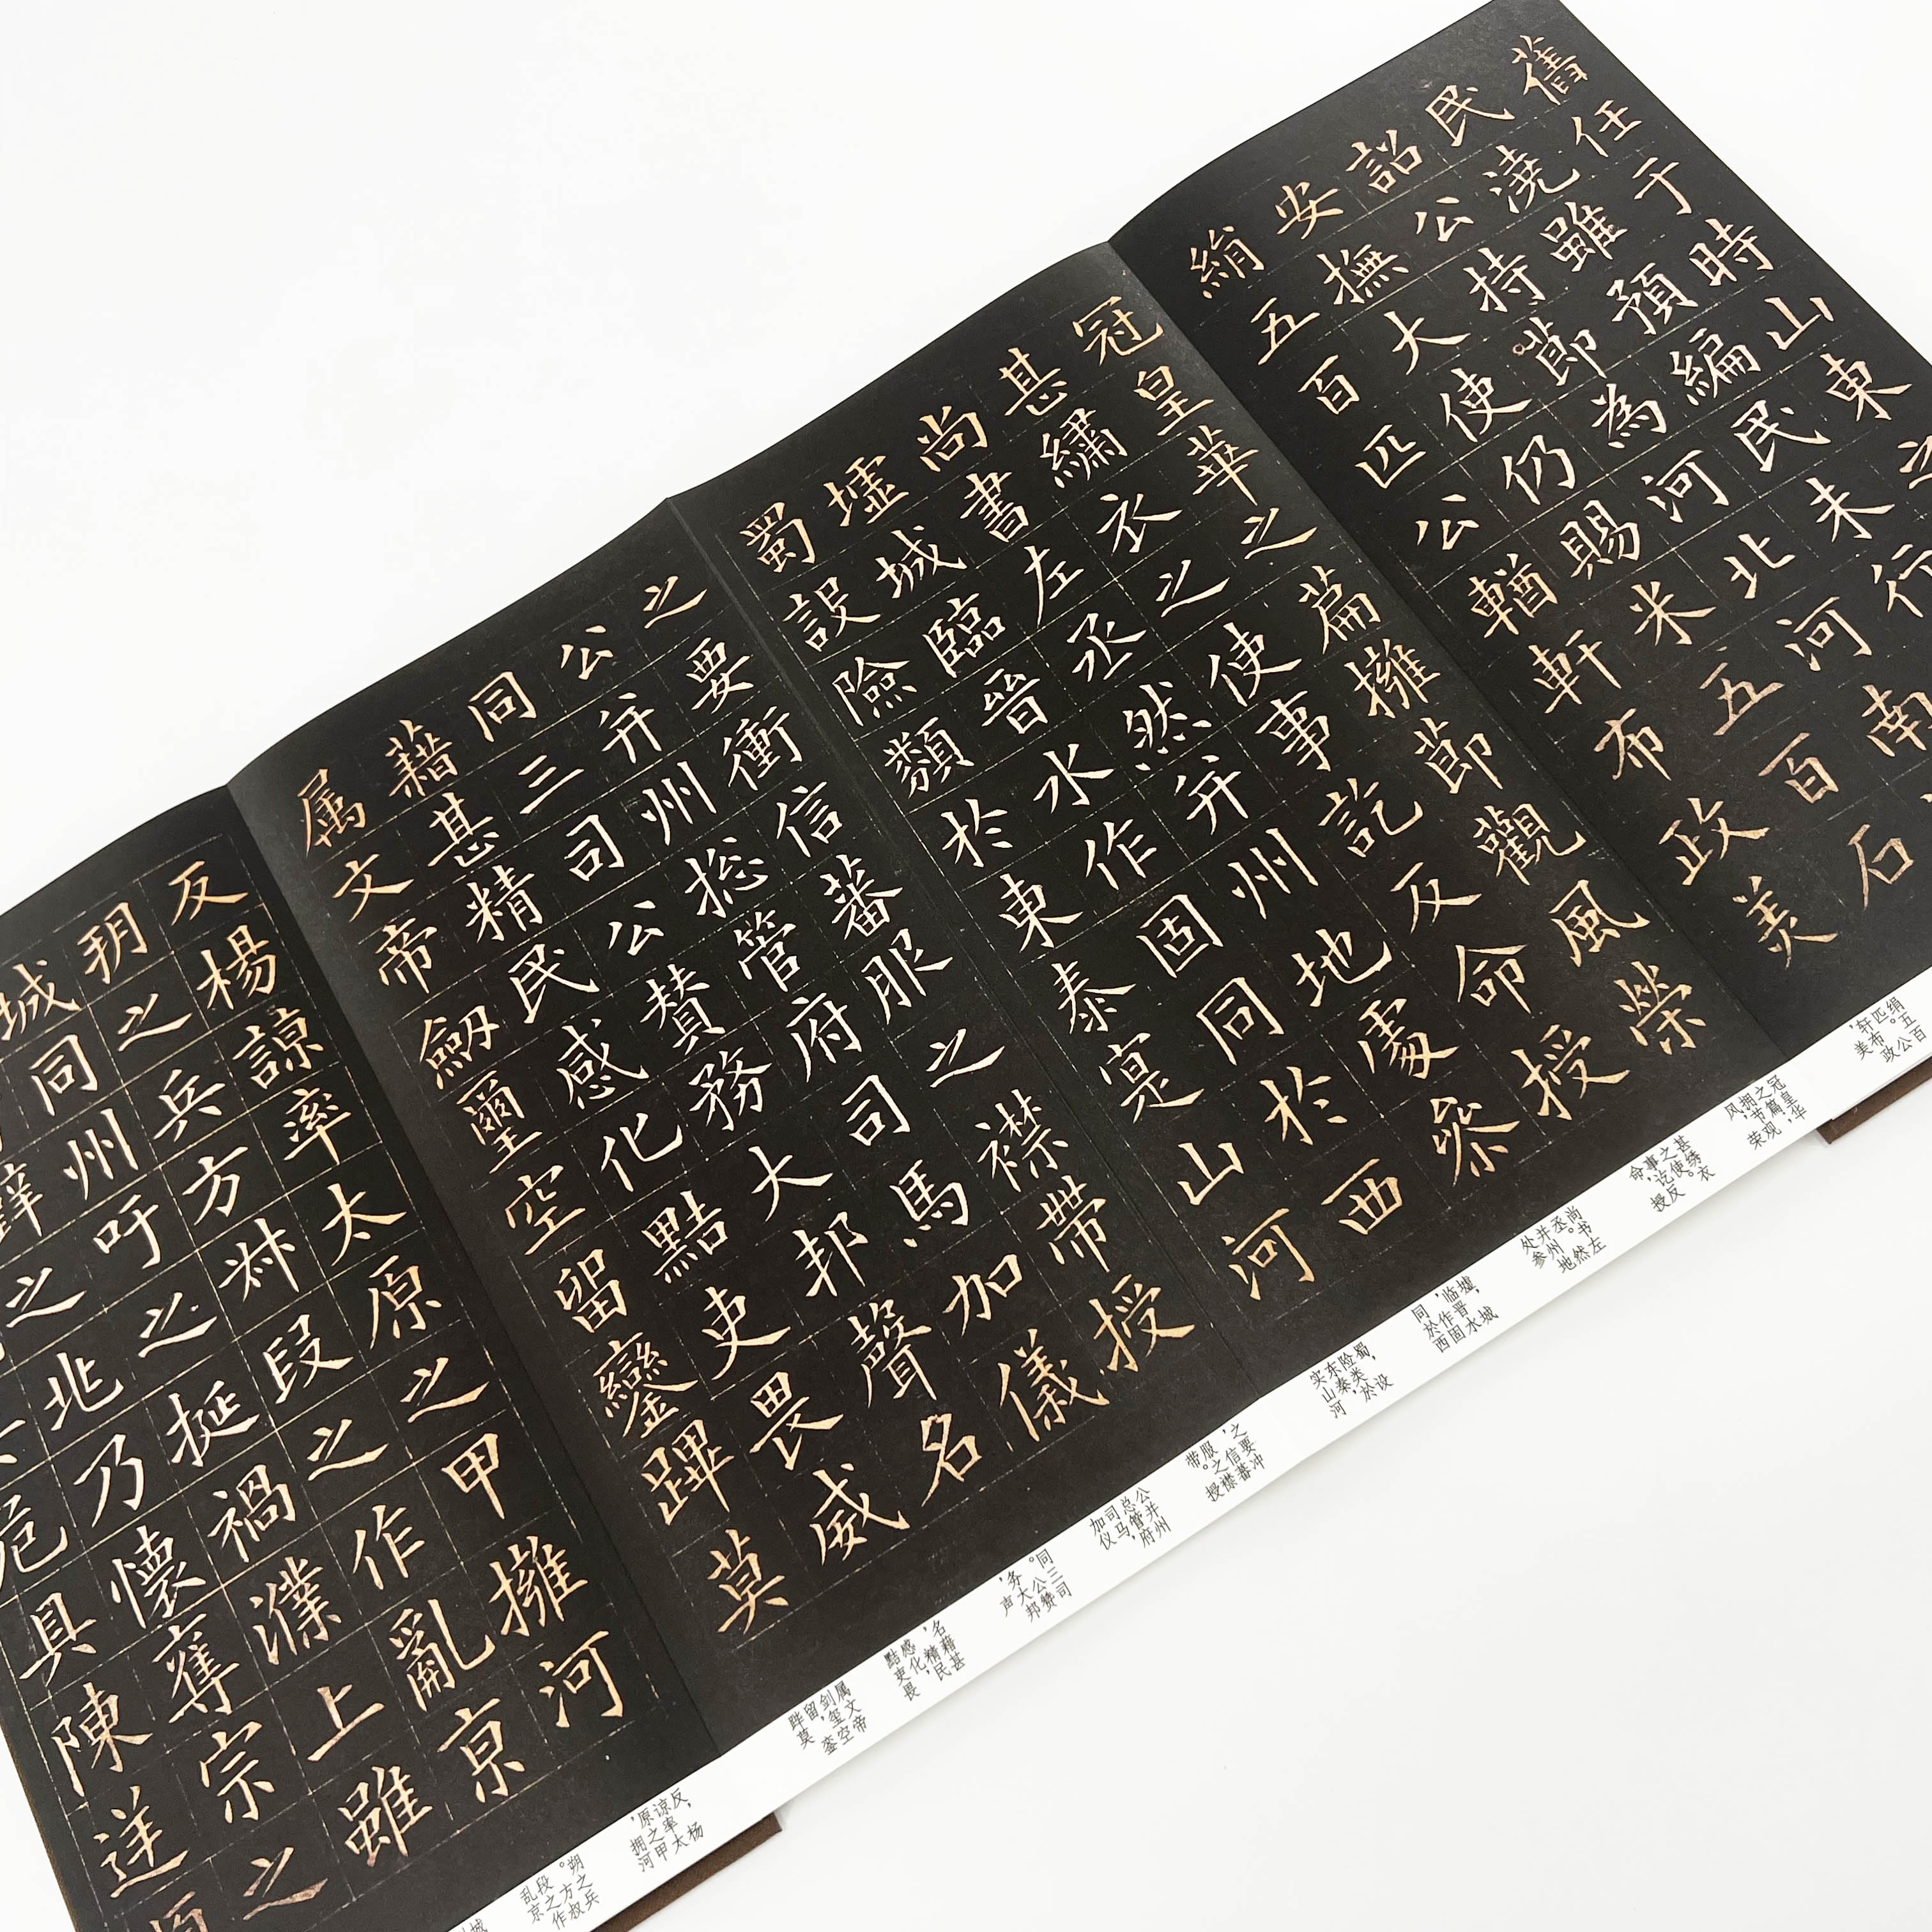 舊任于時山東之
民澆雖預編民未行
詔公持節為河北河南
安撫大使仍賜米五百石
絹五百匹公輶軒布政美
冠皇華之篇擁節觀風榮
甚繡衣之使事訖反命授
尚書左丞然并州地處參
墟城臨晉水作固同於西
蜀設險類於東泰寔山河
之要衝信蕃服之襟帶授
公并州摠管府司馬加儀
同三司公賛務大邦聲名
藉甚精民感化黠吏畏威
属文帝劒璽空留鑾蹕莫
反楊諒率太原之甲擁河
朔之兵方叔段之作亂京
城同州吁之挻禍濮上雖
之兆乃懷奪宗之
具陳逆
绢五百匹。公轩，布政美
冠皇华之篇，拥节观风，荣
甚绣衣之使。事讫，反命授
尚书左丞。然并州地处参
墟城临晋水，作固同於西
蜀，设险类於东泰，实山河
之要冲，信蕃服之襟带。授
公并州总管府司马，加仪
同三司。公赞务大邦，声
名藉甚，精民感化，黠吏畏
属文帝剑玺空留，銮跸莫
反，杨谅率太原之甲，拥河
朔之兵。方叔段之作乱京
城